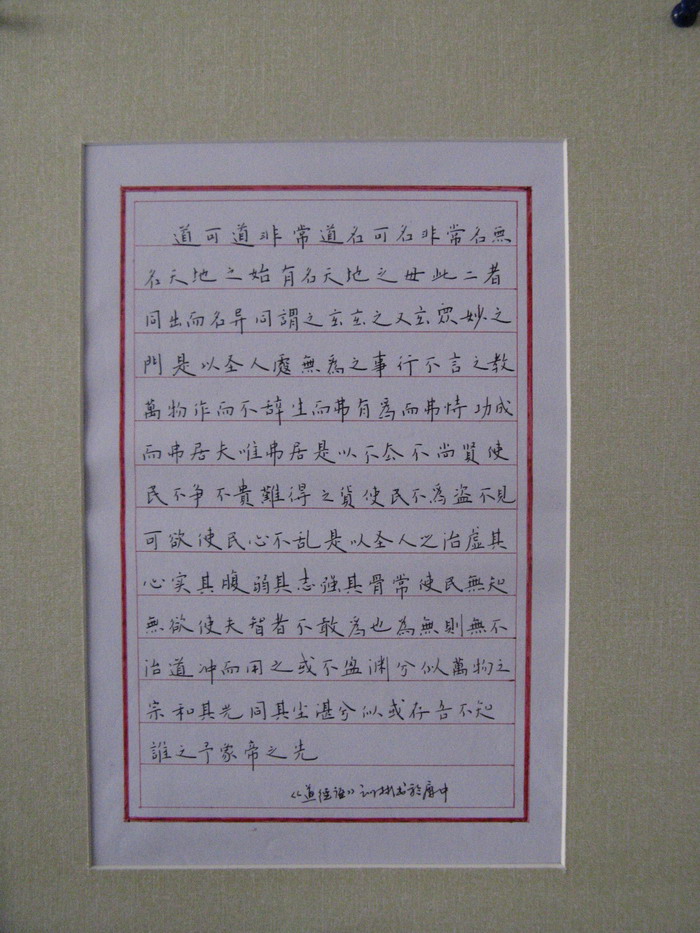 道可道非常道名可名非常名無
名天地之始有名天地之毋此二者
同出而名异同謂之玄玄之又玄眾妙之
門是以圣人處無為之事行不言之教
萬物作而不辞生而弗有為而弗恃功成
而弗居夫唯弗居是以不去不尚賢使
民不争不貴難得之貨使民不為盗不見
可欲使民心不乱是以圣人之治虚其
心实其腹弱其志强其骨常使民無知
無欲使夫智者不敢為也為無則無不
治道冲而用之或不盈渊兮似萬物之
宗和其光同其尘湛兮似或存吾不知
誰之子象帝之先
《道德經》书於府中